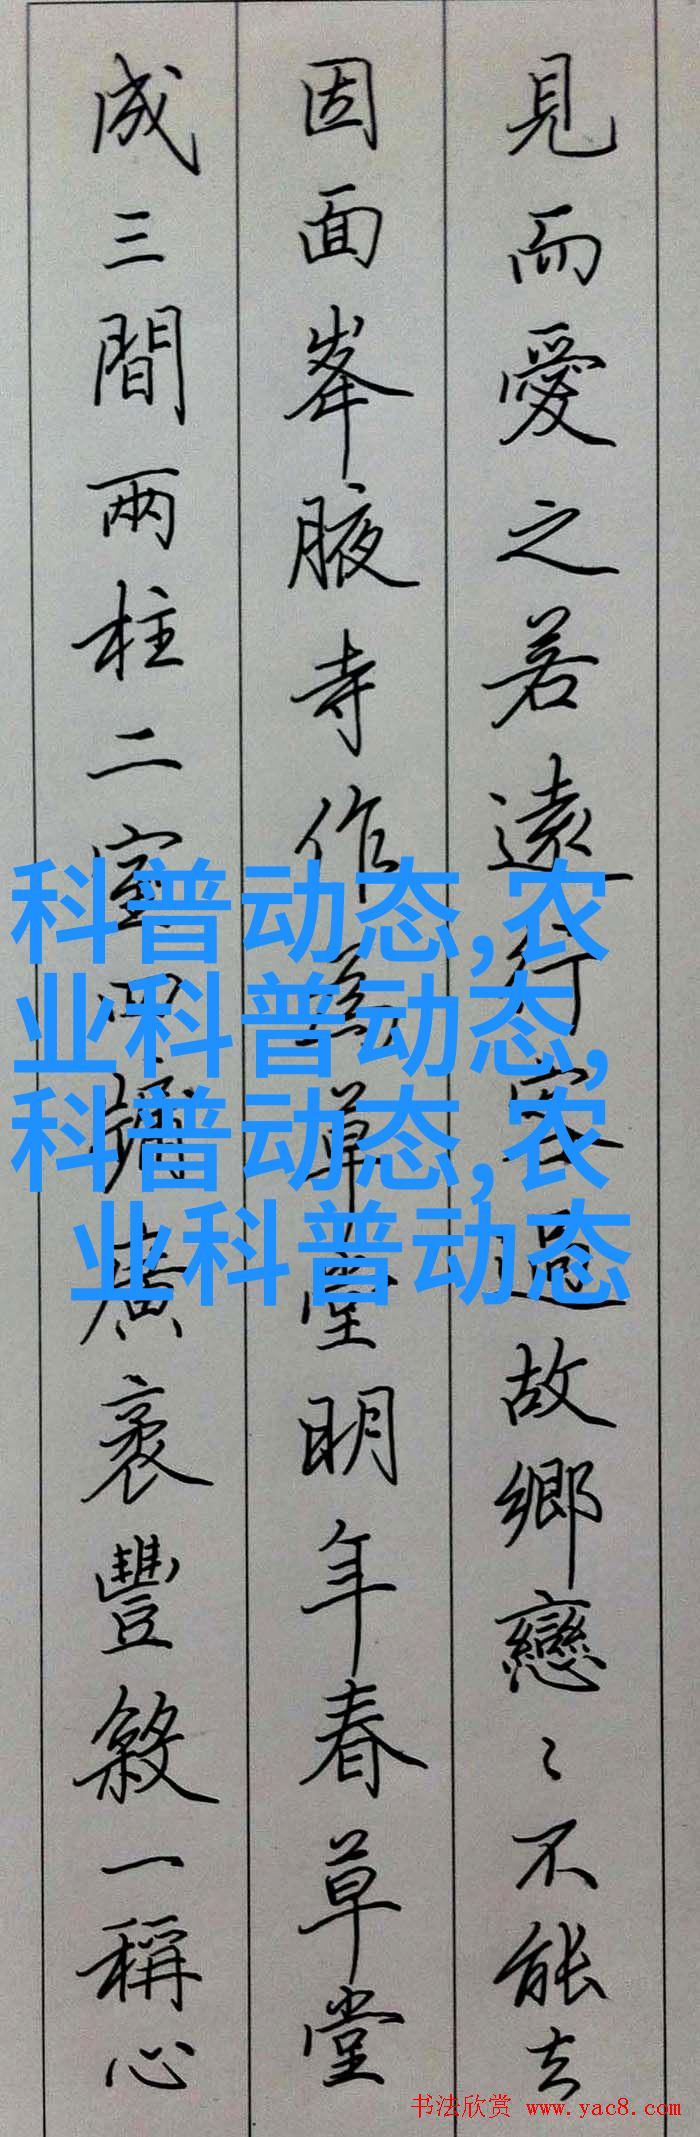 見而愛之若遠行客過故鄉戀〻不能去
因面峯腋寺作為草堂明年春草堂
成三間兩柱二室四牖廣袤豐殺一稱心
科普动态,农
业科普动态,
科普动态,农
业科普动态
书法欣赏 www.yac8.com